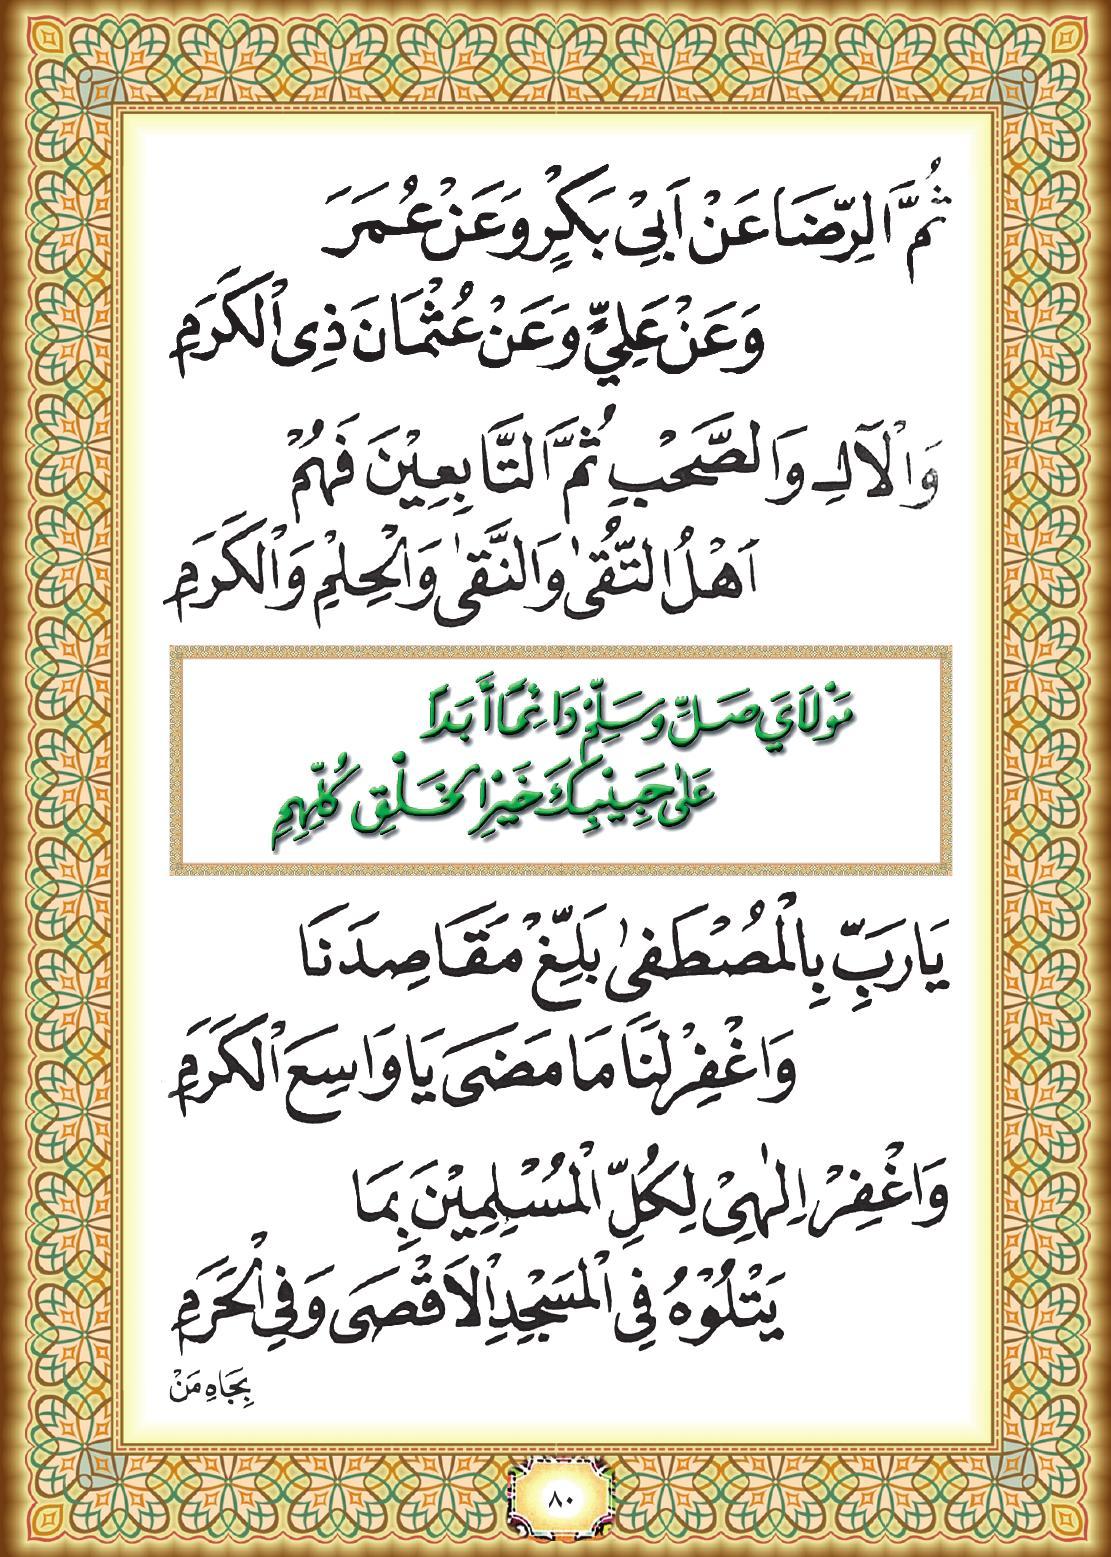 ثُمَّ الرِّضَا عَنْ اَبِيْ بَكْرٍ وَعَنْ عُمَرَ
وَعَنْ عَلِيٍّ وَعَنْ عُثْمَانَ ذِى الْكَرَمِ
وَالْآلِ وَالصَّحْبِ ثُمَّ التَّابِعِيْنَ فَهُمْ
اَهْلُ التُّقىٰ وَالنَّقىٰ وَالْحِلْمِ وَالْكَرَمِ
مَوْلَايَ صَلِّ وَسَلِّمْ دَائِمًا أَبَدًا
عَلىٰ حَبِيْبِكَ خَيْرِ الْخَلْقِ كُلِّهِمِ
يَارَبِّ بِالْمُصْطَفىٰ بَلِّغْ مَقَاصِدَنَا
وَاغْفِرْ لَنَا مَا مَضَى يَا وَاسِعَ الْكَرَمِ
وَاغْفِرْ اِلٰهِىْ لِكُلِّ الْمُسْلِمِيْنَ بِمَا
يَتْلُوْهُ فِى الْمَسْجِدِ الْاَقْصَى وَفِى الْحَرَمِ
بِجَاهِ مَنْ
٨٠